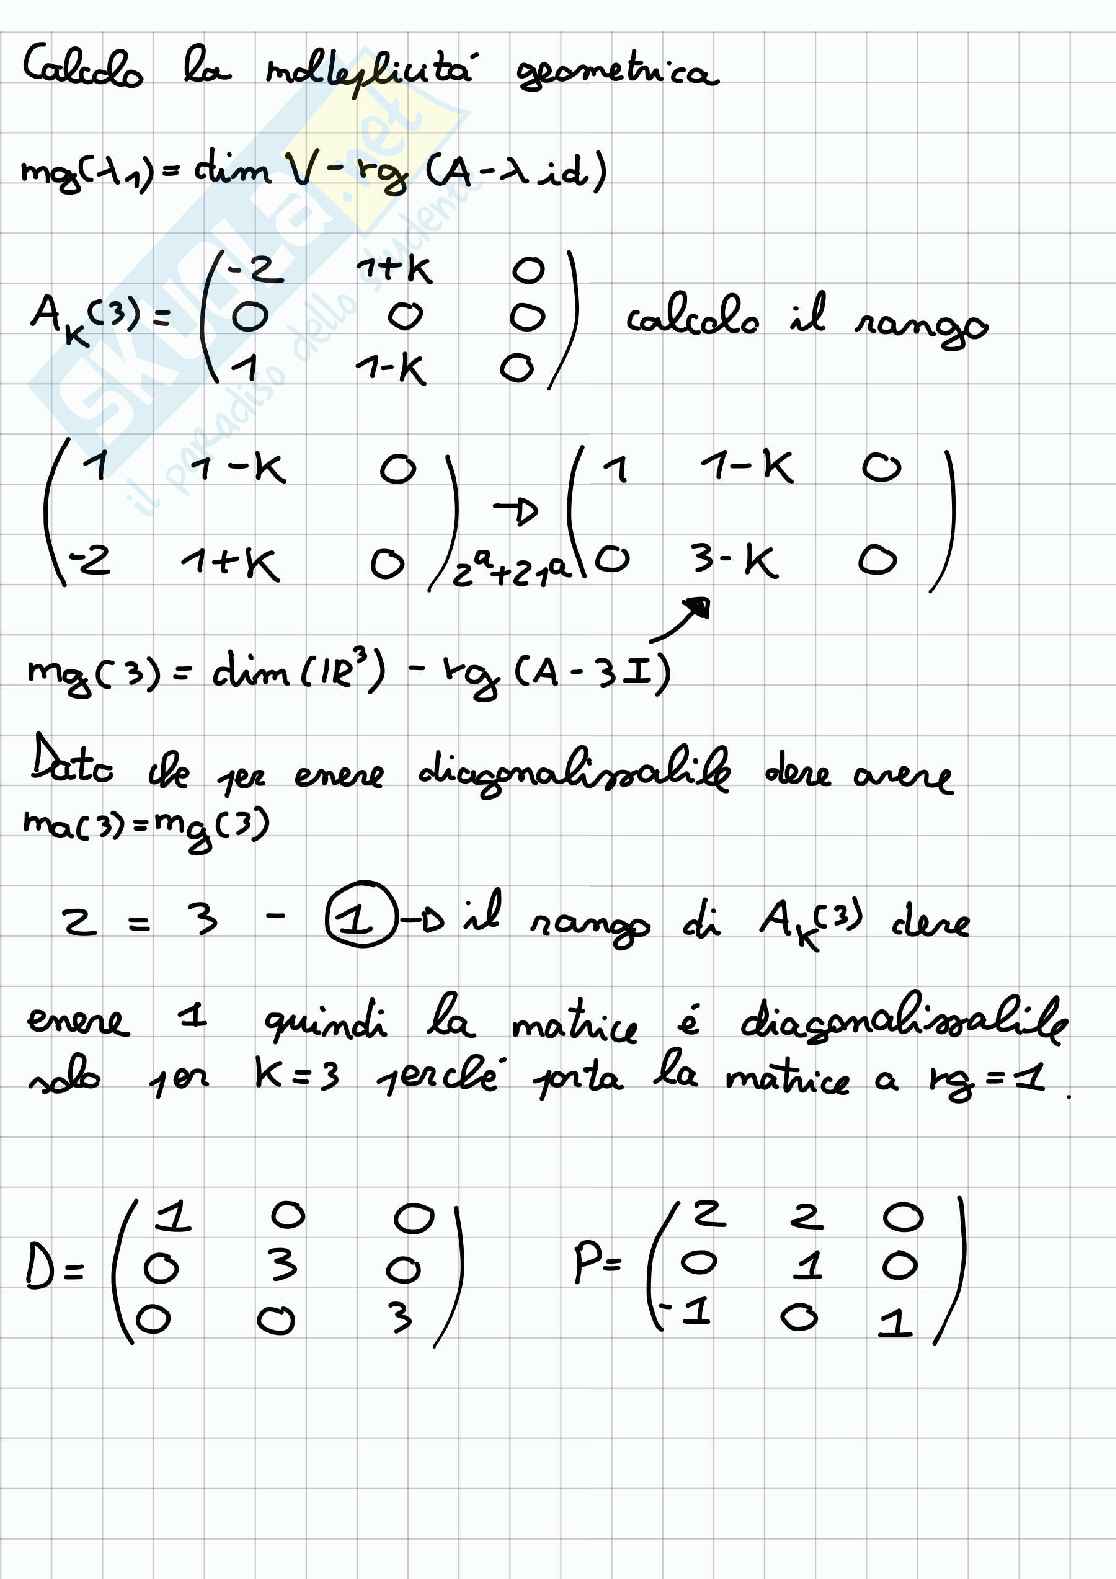 Calcolo la molteplicitá geometrica
mg(λ1) = dim V - rg (A - λ id)
-2 1+K 0
A_K(3) = 0 0 0 calcolo il rango
1 1-K 0
1 1-K 0 → 1 1-K 0
-2 1+K 0 2ª+21ª 0 3-K 0
mg(3) = dim(IR³) - rg (A - 3I)
Dato che per essere diagonalizzabile deve avere
ma(3) = mg(3)
2 = 3 - 1 → il rango di A_K(3) deve
essere 1 quindi la matrice é diagonalizzabile
solo per K=3 perché porta la matrice a rg=1.
1 0 0 2 2 0
D= 0 3 0 P= 0 1 0
0 0 3 -1 0 1
SKUOLA.net
il paradiso dello studente